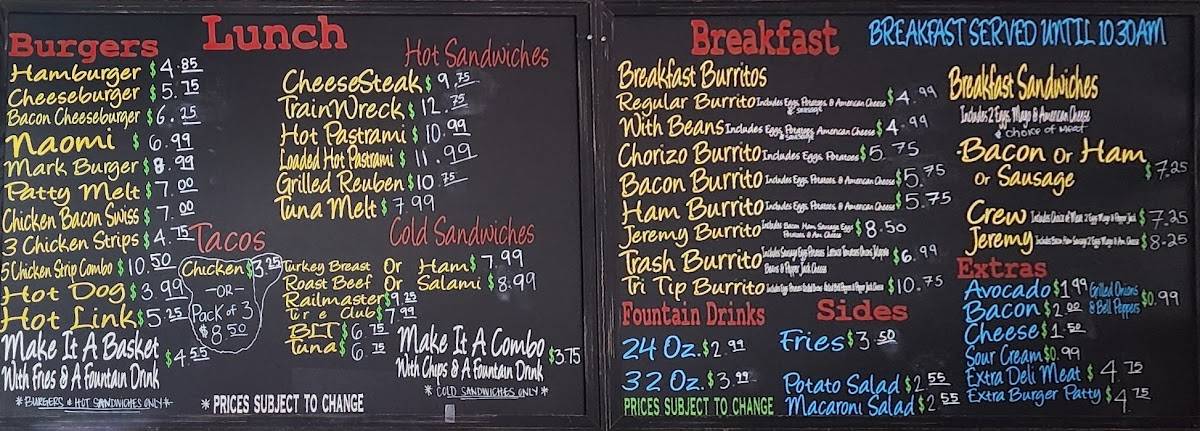 Lunch
Burgers
Hamburger $4.85
Cheeseburger $5.75
Bacon Cheeseburger $6.25
Naomi $6.99
Mark Burger $8.99
Patty Melt $7.00
Chicken Bacon Swiss $7.00
3 Chicken Strips $4.75
5 Chicken Strip Combo $10.50
Hot Dog $3.99
Hot Link $5.25
Make It A Basket
With Fries & A Fountain Drink
$4.55
*BURGERS & HOT SANDWICHES ONLY*
Tacos
Chicken $3.25
-OR-
Pack of 3
$8.50
Hot Sandwiches
CheeseSteak $9.75
TrainWreck $12.75
Hot Pastrami $10.99
Loaded Hot Pastrami $11.99
Grilled Reuben $10.75
Tuna Melt $7.99
Cold Sandwiches
Turkey Breast Or Ham $7.99
Roast Beef Or Salami $8.99
Railmaster $9.25
Club $7.99
BLT $6.75
Tuna $6.75
Make It A Combo
With Chips & A Fountain Drink
$3.75
*COLD SANDWICHES ONLY*
*PRICES SUBJECT TO CHANGE
Breakfast
BREAKFAST SERVED UNTIL 10:30AM
Breakfast Burritos
Regular Burrito Includes Eggs, Potatoes, & American Cheese $4.99
& SAUSAGE
With Beans Includes Eggs, Potatoes, American Cheese $4.99
& SAUSAGE
Chorizo Burrito Includes Eggs, Potatoes $5.75
Bacon Burrito Includes Eggs, Potatoes, & American Cheese $5.75
Ham Burrito Includes Eggs, Potatoes, & American Cheese $5.75
Jeremy Burrito Includes Bacon Ham Sausage Eggs Potatoes & Am Cheese $8.50
Trash Burrito Includes Sausage Eggs Potatoes Lettuce Tomatoes Onions Jalapeño Beans & Pepper Jack Cheese $6.99
Tri Tip Burrito $10.75
Fountain Drinks
24 Oz. $2.99
32 Oz. $3.99
PRICES SUBJECT TO CHANGE
Sides
Fries $3.50
Potato Salad $2.55
Macaroni Salad $2.55
Breakfast Sandwiches
Includes 2 Eggs, Mayo & American Cheese
& choice of MEAT
Bacon Or Ham
Or Sausage
$7.25
Crew Includes Choice of Meat 2 Eggs Mayo & Pepper Jack $7.25
Jeremy Includes Bacon Ham Sausage 2 Eggs Mayo & Am Cheese $8.25
Extras
Avocado $1.99
Bacon $2.00
Grilled Onions
& Bell Peppers
$0.99
Cheese $1.50
Sour Cream $0.99
Extra Deli Meat $4.75
Extra Burger Patty $4.75